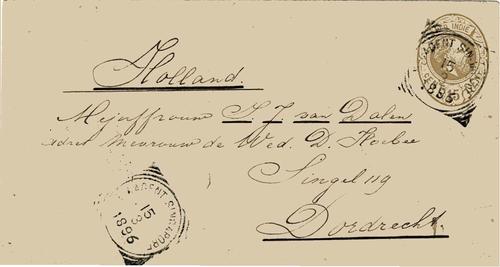 Holland.
Mejuffrouw S J van Dalen
adres Mevrouw de Wed. D. Korbee
Singel 119
Dordrecht.
AGENT SINGAPORE
15
3
1896
INDIE
AGENT SIN
15
1896